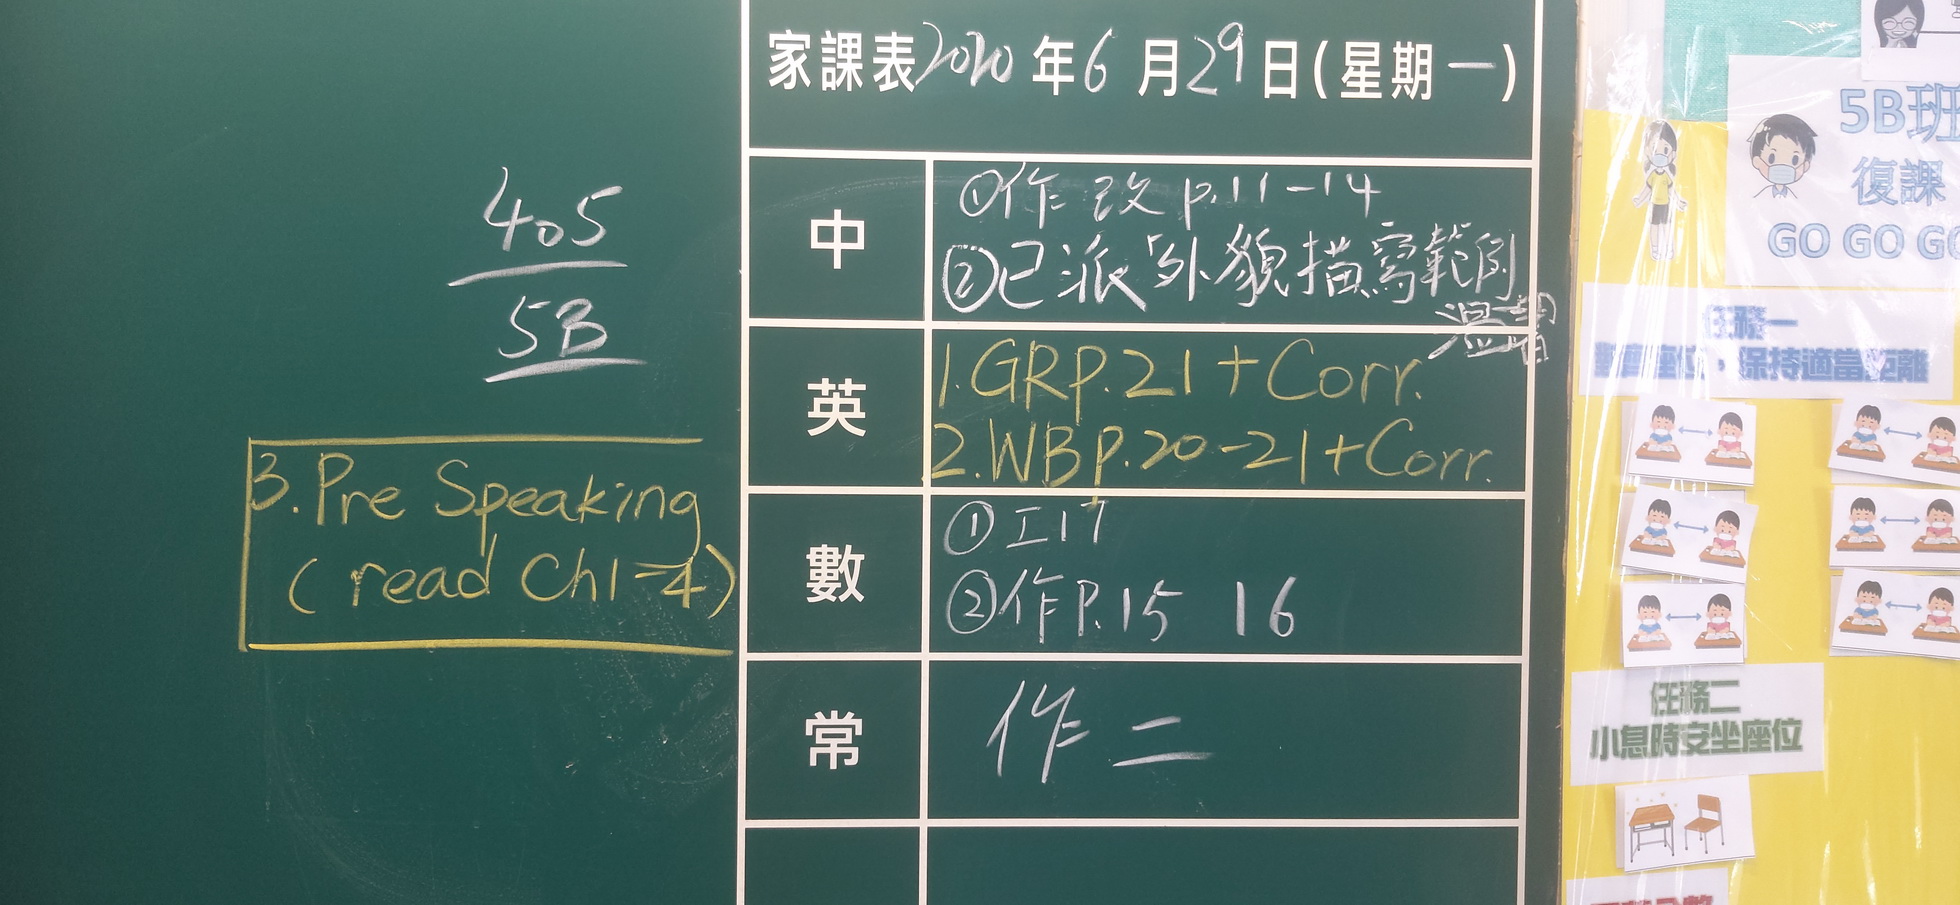 家課表2020年6月29日(星期一)
405
5B
中
①作 改 p.11-14
②已派「外貌描寫範例
溫習
英
1.GRP.21+Corr.
2.WBP.20-21+Corr.
3.Pre Speaking
(read Ch1-4)
數
①工17
②作P.15 16
常
作二
5B班
復課
GO GO GO
任務一
座位，保持適當距離
任務二
小息時安坐座位